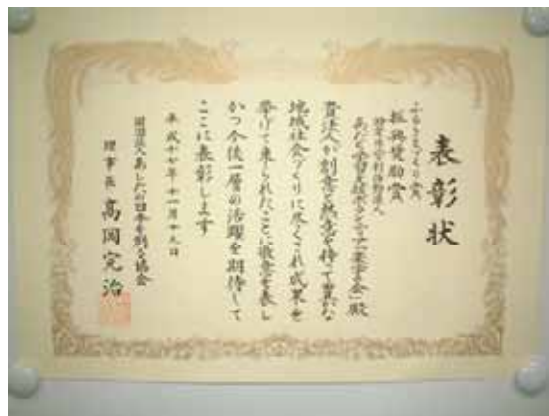 表彰状
ふるさとづくり賞
振興奨励賞
特定非営利活動法人
あだち学習支援ボランティア「楽学の会」殿
貴法人が創意と熱意を持って豊かな
地域社会づくりに尽くされ成果を
挙げて来られたことに敬意を表し
かつ今後一層の活躍を期待して
ここに表彰します
平成十七年十一月十九日
財団法人あしたの日本を創る協会
理事長 高岡完治